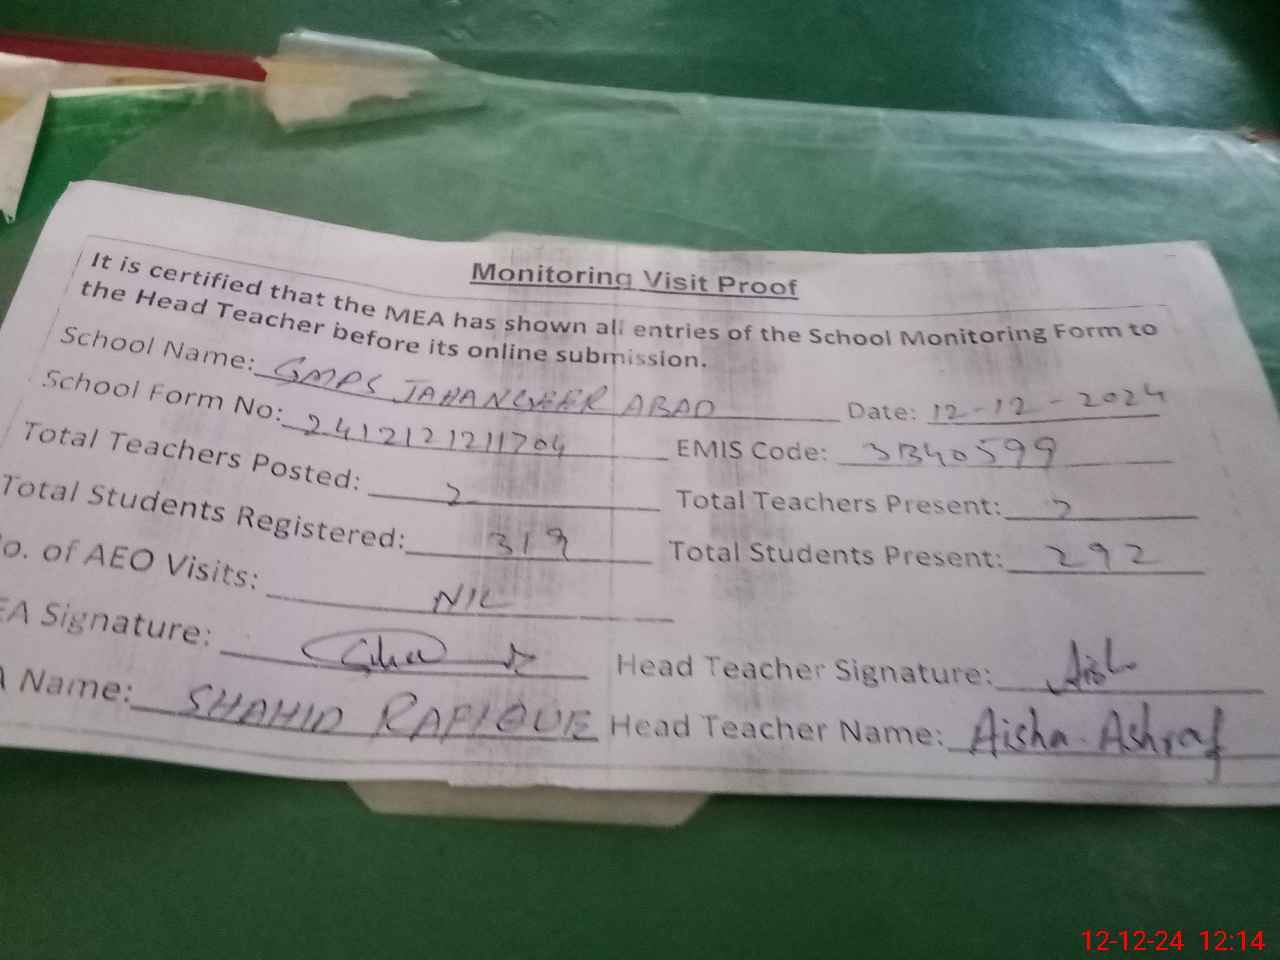 Monitoring Visit Proof
It is certified that the MEA has shown all entries of the School Monitoring Form to
the Head Teacher before its online submission.
School Name: GMPS JAHANGEER ABAD Date: 12-12-2024
School Form No: 2412121211704 EMIS Code: 31340599
Total Teachers Posted: 2 Total Teachers Present: 2
Total Students Registered: 319 Total Students Present: 292
o. of AEO Visits: NIL
EA Signature: Head Teacher Signature:
A Name: SHAHID RAFIQUE Head Teacher Name: Aisha Ashraf
12-12-24 12:14